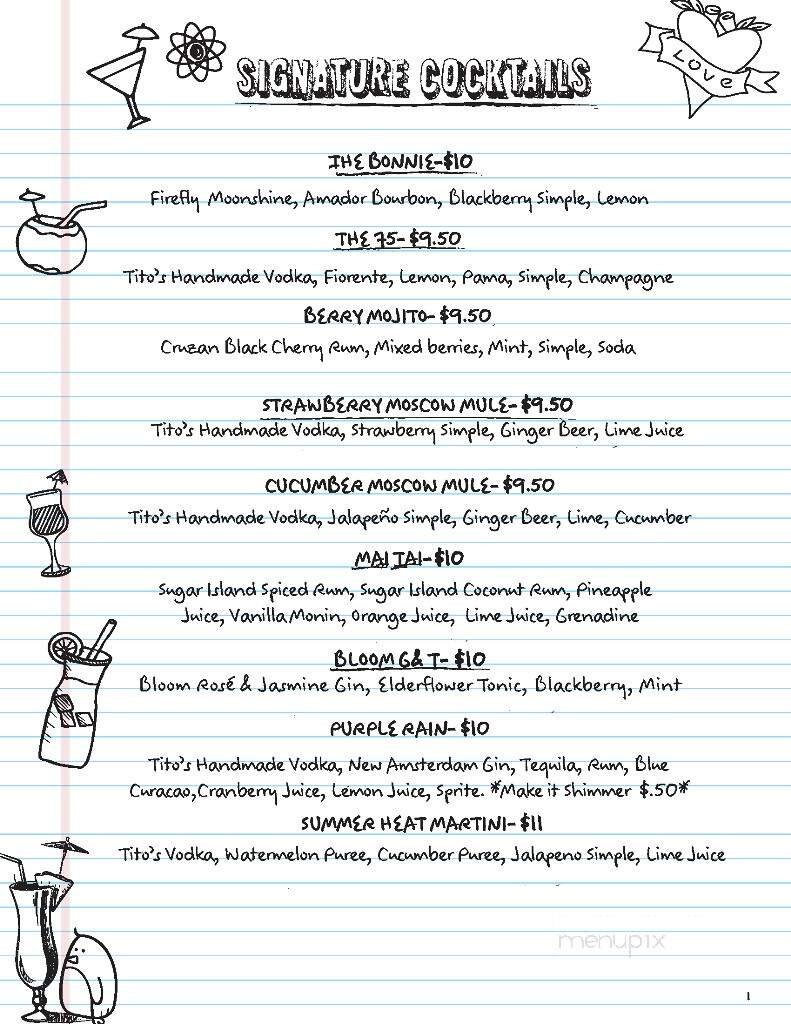 SIGNATURE COCKTAILS
LOVE
THE BONNIE-$10
Firefly Moonshine, Amador Bourbon, Blackberry Simple, Lemon
THE 75-$9.50
Tito's Handmade Vodka, Fiorente, Lemon, Pama, Simple, Champagne
BERRY MOJITO-$9.50
Cruzan Black Cherry Rum, Mixed berries, Mint, Simple, Soda
STRAWBERRY MOSCOW MULE-$9.50
Tito's Handmade Vodka, Strawberry Simple, Ginger Beer, Lime Juice
CUCUMBER MOSCOW MULE-$9.50
Tito's Handmade Vodka, Jalapeño Simple, Ginger Beer, Lime, Cucumber
MAI TAI-$10
Sugar Island Spiced Rum, Sugar Island Coconut Rum, Pineapple
Juice, Vanilla Monin, Orange Juice, Lime Juice, Grenadine
BLOOM G& T-$10
Bloom Rosé & Jasmine Gin, Elderflower Tonic, Blackberry, Mint
PURPLE RAIN-$10
Tito's Handmade Vodka, New Amsterdam Gin, Tequila, Rum, Blue
Curacao,Cranberry Juice, Lemon Juice, Sprite. *Make it Shimmer $.50*
SUMMER HEAT MARTINI-$11
Tito's Vodka, Watermelon Puree, Cucumber Puree, Jalapeno Simple, Lime Juice
menupix
1